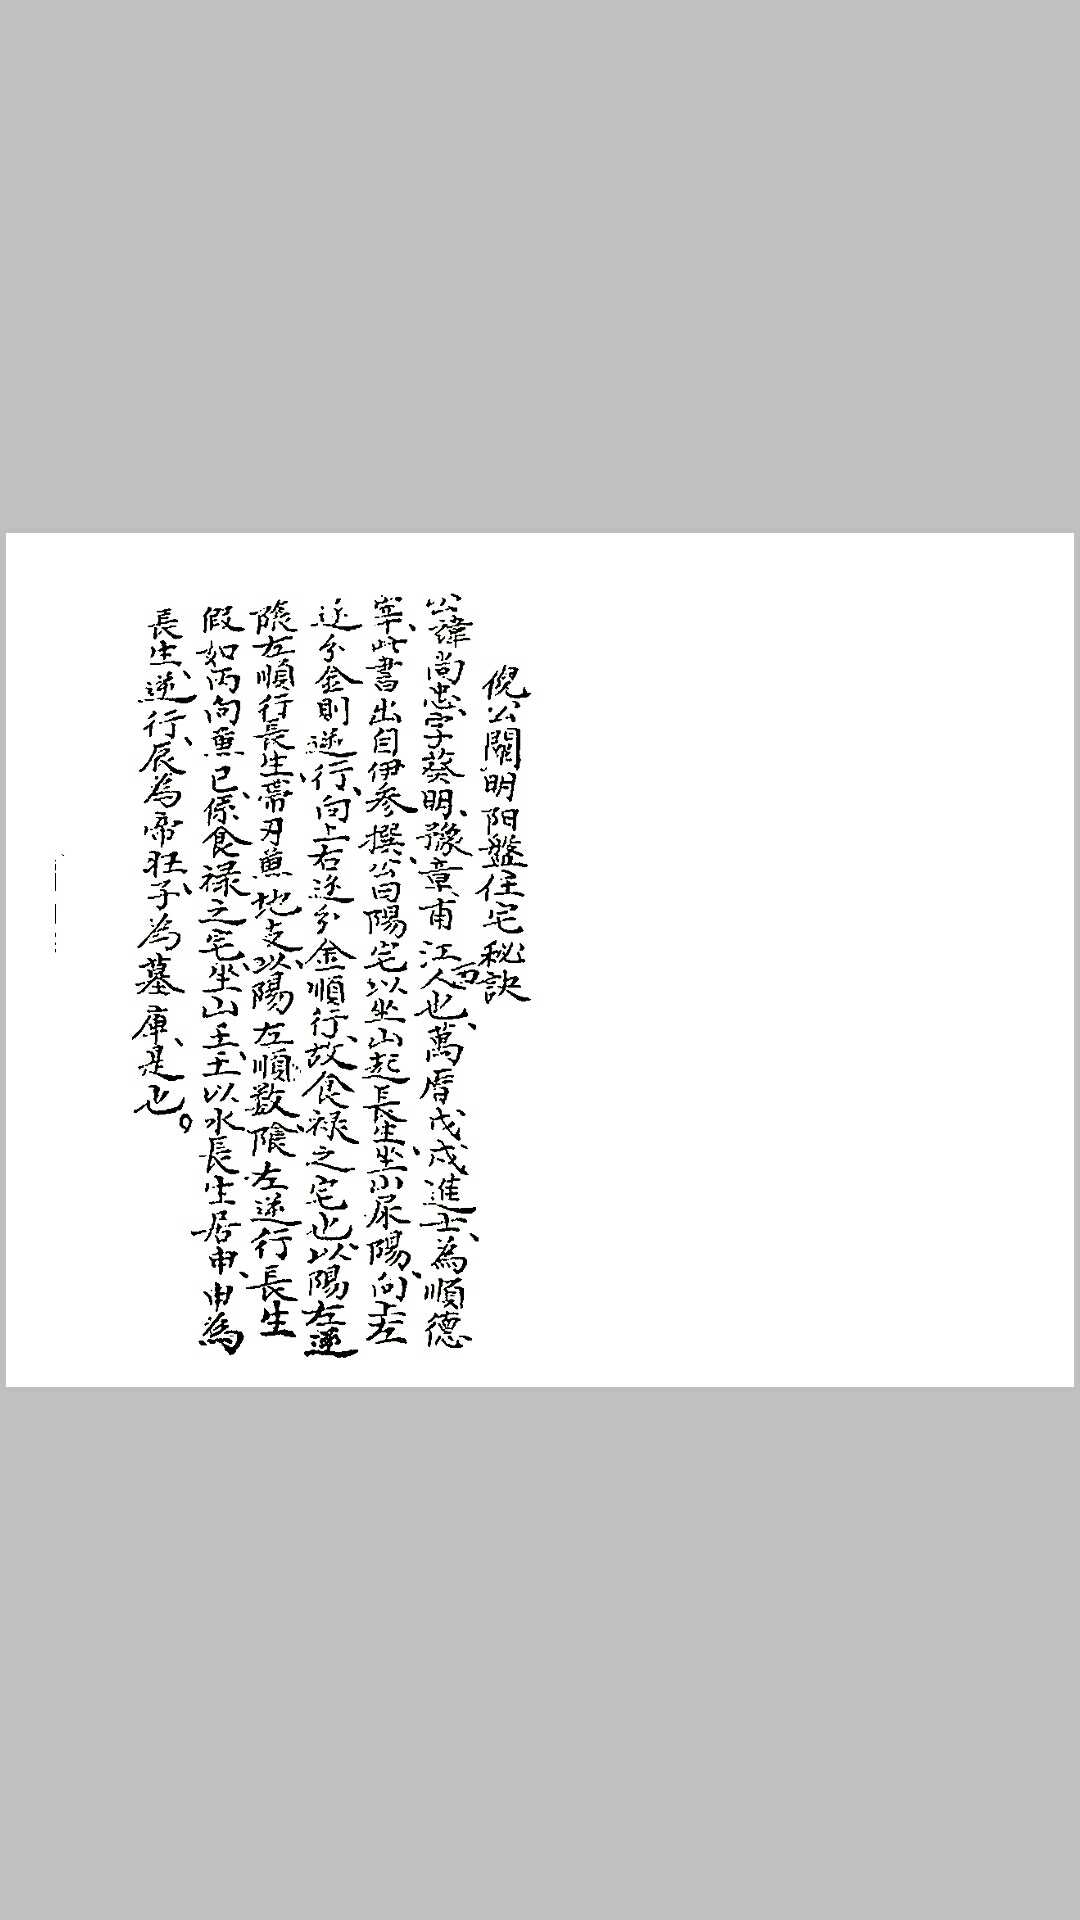 倪公關明阳盤住宅秘訣
公諱尚忠、字葵明、豫章甫江西人也、萬曆戊戌進士、為順德
宰、此書出自伊参撰、公曰陽宅以坐山起長生、坐山屎陽、向上左
逆分金則逆行、向上右逆分金順行、故食禄之宅也、以陽左逆
陰左順行長生、帶刃兼地支、以陽左順数、陰左逆行長生
假如丙向兼巳、係食禄之宅、坐山壬、壬以水長生居申、申為
長生、逆行、辰為帝旺、子為墓庫、是也。